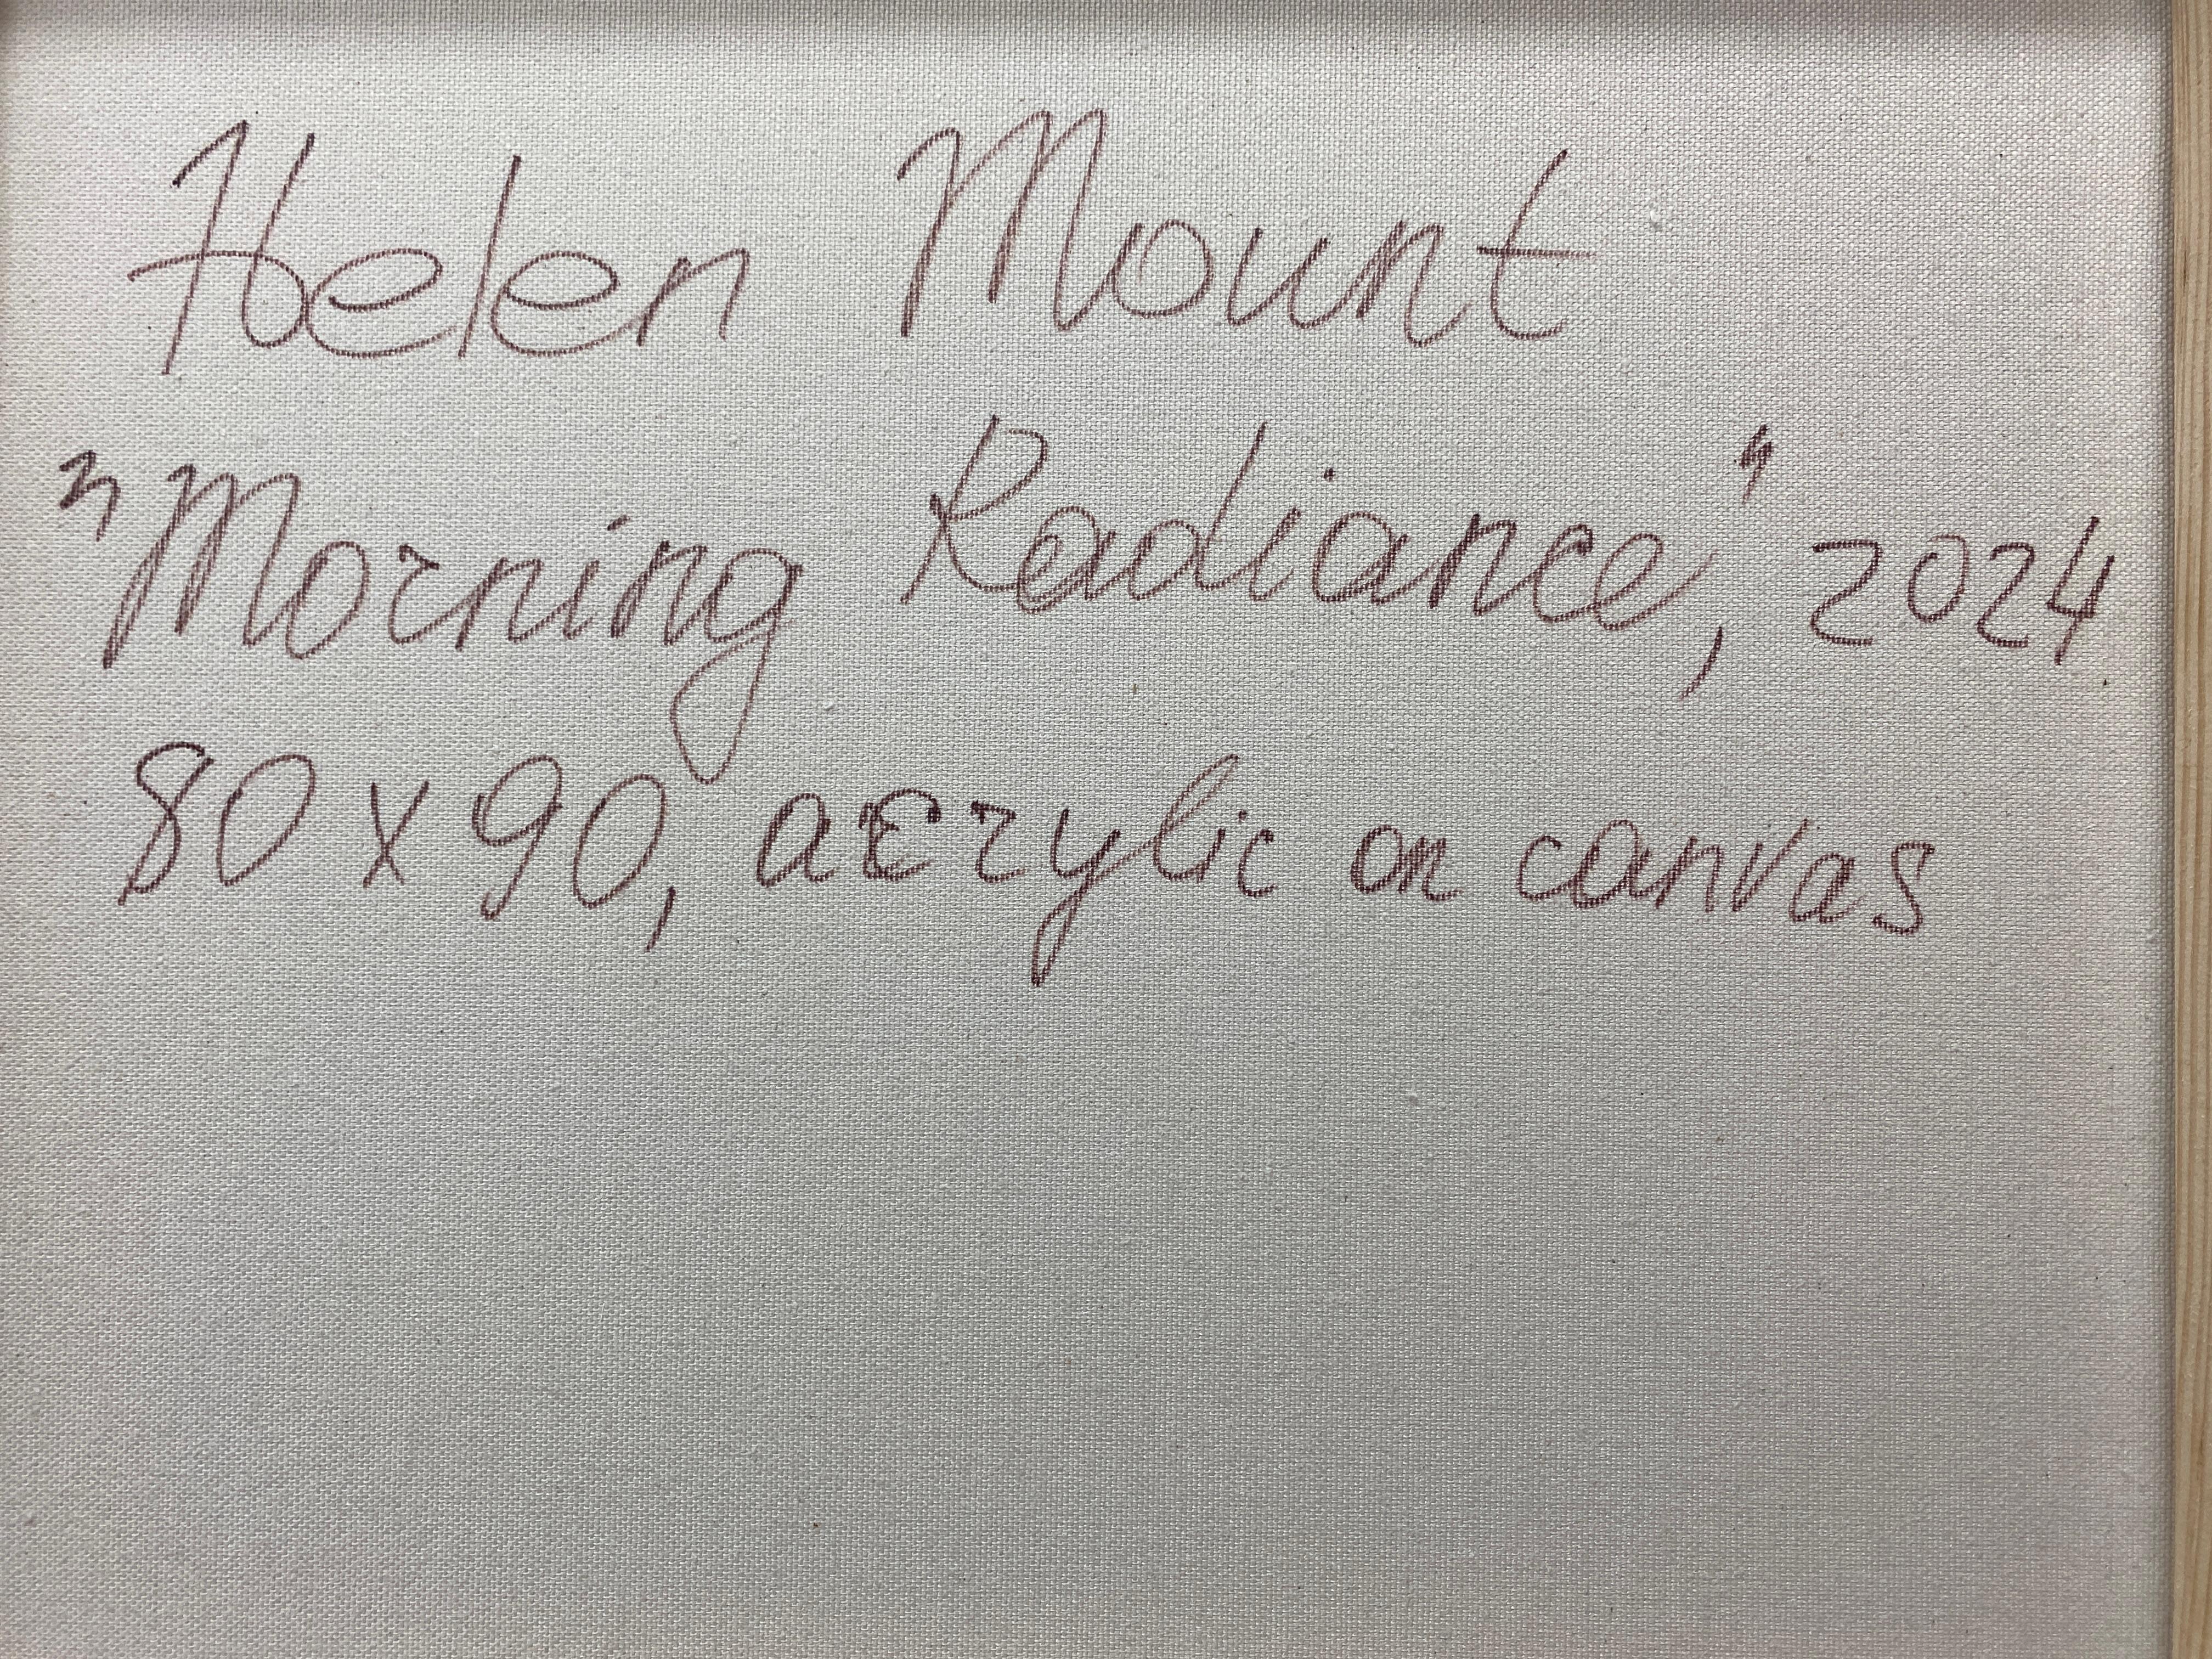 Helen Mount
"Morning Radiance", 2024
80 x 90, acrylic on canvas